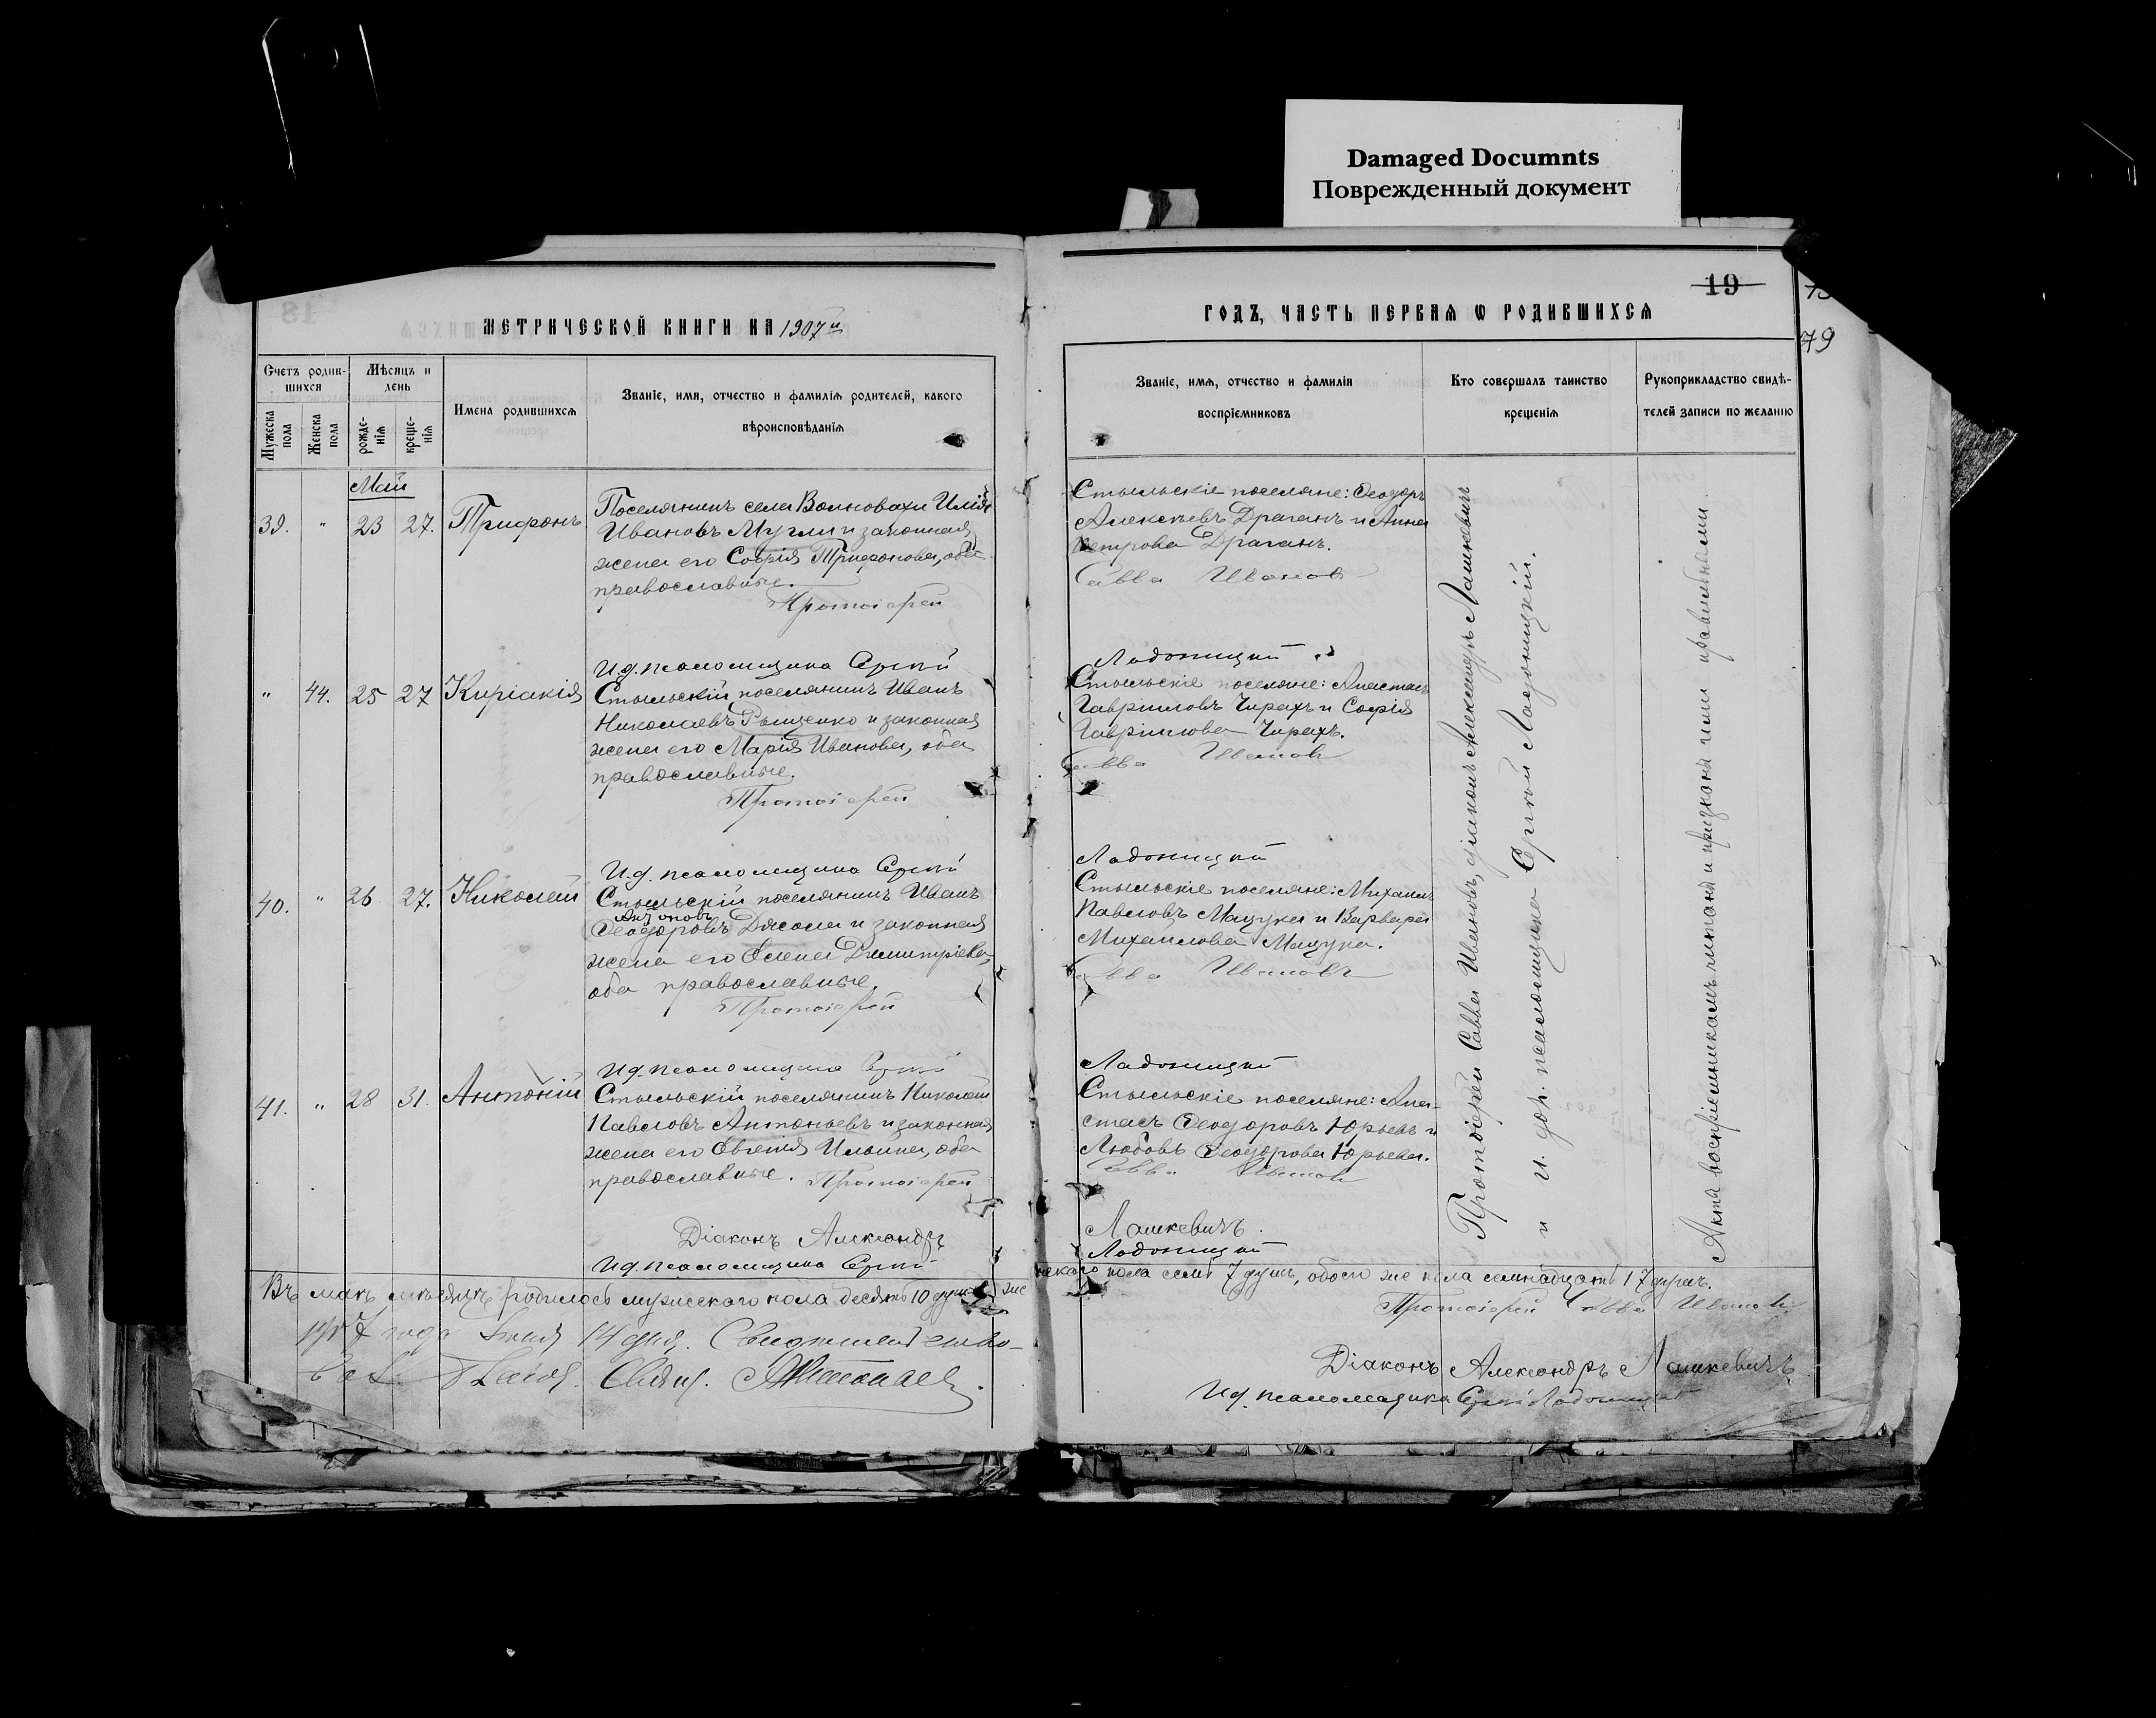 Damaged Documnts
Поврежденный документ
МЕТРИЧЕСКОЙ КНИГИ НА 1907й
Счетъ родив-
шихся
Мѣсяцъ и
день
Мужеска
пола
Женска
пола
рожде-
нія
креще-
нія
Имена родившихся
Званіе, имя, отчество и фамилія родителей, какого
вѣроисповѣданія
Май
39. " 23 27. Трифонъ
Поселянинъ села Волновахи Илія
Ивановъ Мугли и законная
жена его Софія Трифонова, оба
православные.
Протоіерей
И.д. псаломщика Сергій
" 44. 25 27 Киріакія
Стыльскій поселянинъ Иванъ
Николаевъ и законная
жена его Марія Иванова, оба
православные.
Протоіерей
И.д. псаломщика Сергій
40. " 26 27. Николай
Стыльскій поселянинъ Иванъ
Феодоровъ Джома и законная
жена его Елена Димитріева,
оба православные.
Протоіерей
И.д. псаломщика Сергій
41. " 28 31. Антоній
Стыльскій поселянинъ Николай
Павловъ Антоньевъ и законная
жена его Евгенія Ильина, оба
православные. Протоіерей
Діаконъ Александръ
И.д. псаломщика Сергій
Въ маѣ мѣсяцѣ родилось мужескаго пола десять 10 душъ, же
1907 года 14 дня.
19
79
ГОДЪ, ЧАСТЬ ПЕРВАЯ Ѡ РОДИВШИХСЯ
Званіе, имя, отчество и фамилія
воспріемниковъ
Кто совершалъ таинство
крещенія
Рукоприкладство свидѣ-
телей записи по желанію
Стыльскіе поселяне: Феодоръ
Алексѣевъ Драганъ и Анна
Петрова Драганъ.
Савва Ивановъ
Ладоницкій
Стыльскіе поселяне: Анастасъ
Гавриловъ Чирахъ и Софія
Гаврилова Чирахъ.
Савва Ивановъ
Ладоницкій
Стыльскіе поселяне: Михаилъ
Павловъ Мацука и Варвара
Михайлова Мацука.
Савва Ивановъ
Ладоницкій
Стыльскіе поселяне: Ана-
стасъ Феодоровъ Юрьевъ и
Любовь Феодорова Юрьева.
Савва Ивановъ
Лашкевичъ.
Ладоницкій
Протоіерей Савва Ивановъ, діаконъ Александръ Лашкевичъ
и и. дол. псаломщика Сергій Ладоницкій.
Акта воспріемникамъ читаны и признаны ими правильными.
нскаго пола семь 7 душъ, обоего же пола семнадцать 17 душъ.
Протоіерей Савва Ивановъ
Діаконъ Александръ Лашкевичъ
И.д. псаломщика Сергій Ладоницкій